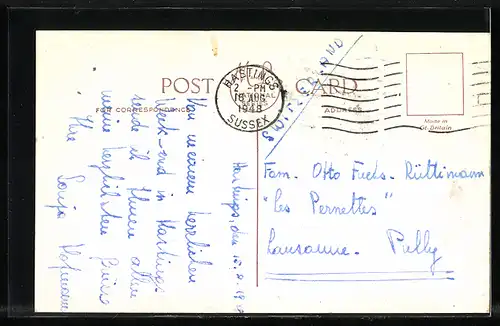 POST CARD
FOR CORRESPONDENCE
ADDRESS
HASTINGS
2 - PM
16 AUG
1948
SUSSEX
SWITZERLAND
Made in
Gt. Britain
Hastings, den 15.8.
Von meinem herrlichen
Week-end in Hastings
sende ich Ihnen allen
meine herzlichsten Grüsse
Ihre
Sonja
Fam. Otto Fuchs-Rüttimann
"Les Pernettes"
Lausanne. Pully